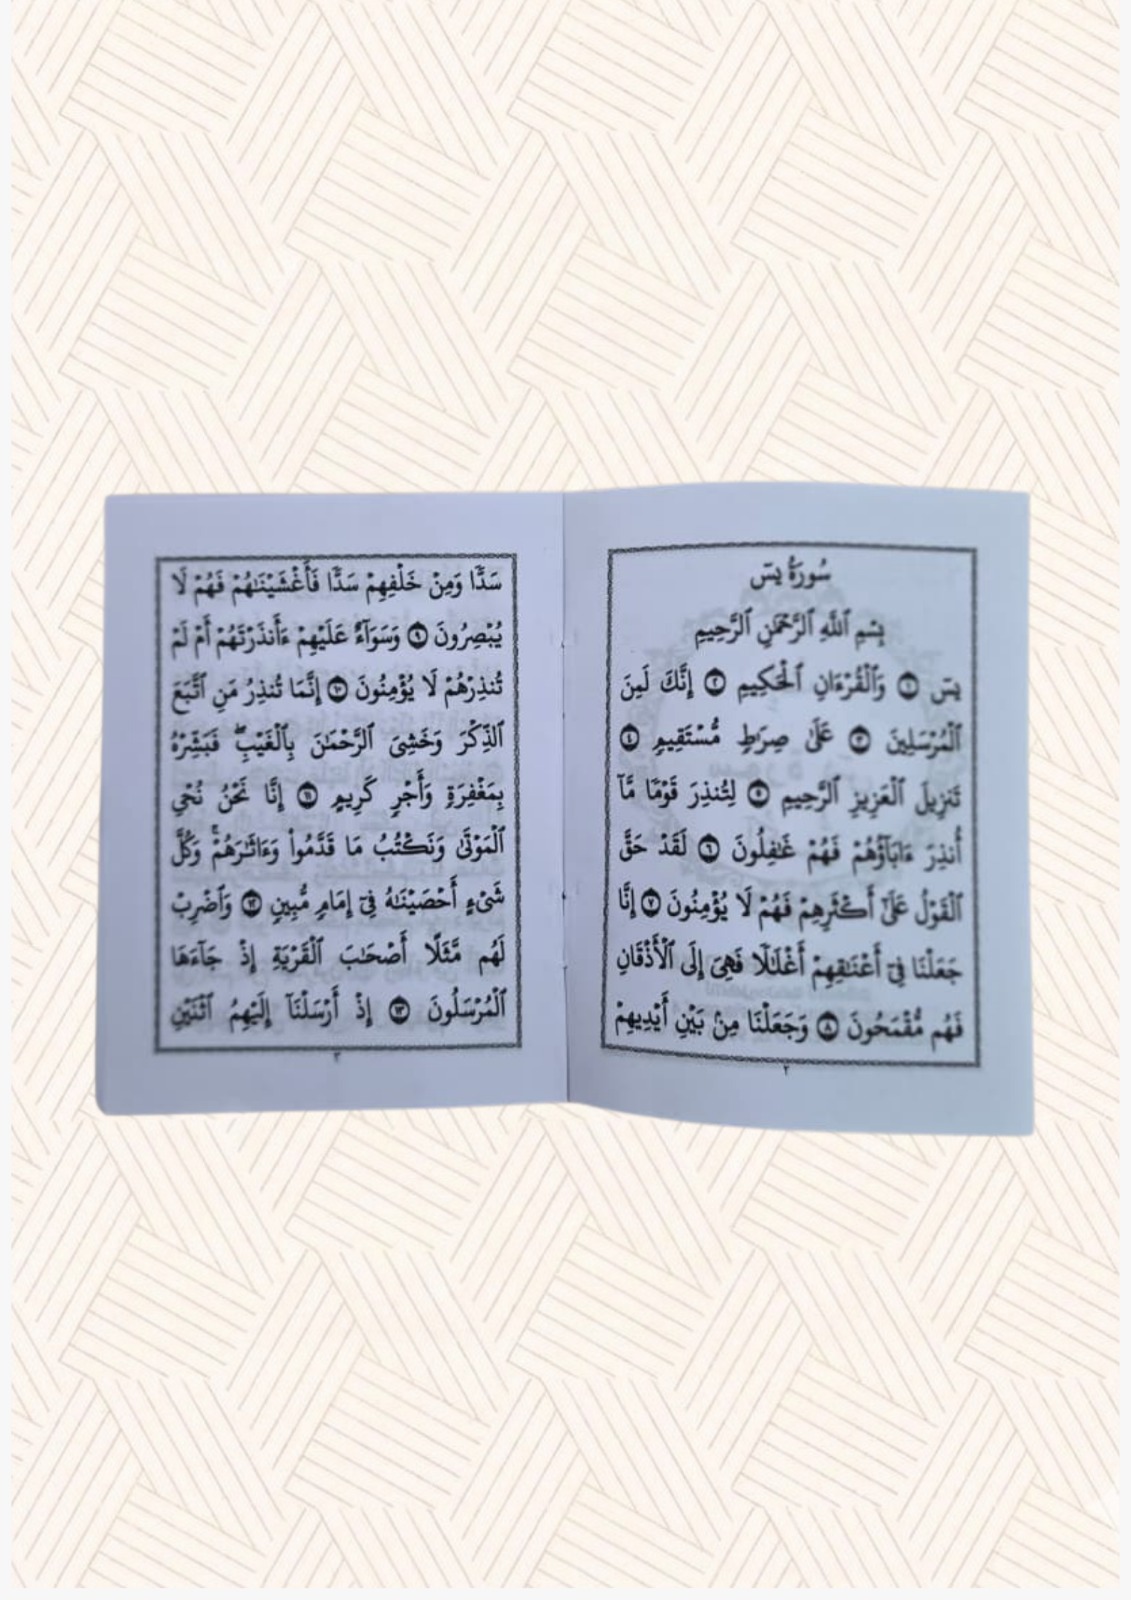 سُورَةُ يسٓ
بِسْمِ ٱللَّهِ ٱلرَّحْمَٰنِ ٱلرَّحِيمِ
يسٓ ١ وَٱلْقُرْءَانِ ٱلْحَكِيمِ ٢ إِنَّكَ لَمِنَ
ٱلْمُرْسَلِينَ ٣ عَلَىٰ صِرَٰطٍ مُّسْتَقِيمٍ ٤
تَنزِيلَ ٱلْعَزِيزِ ٱلرَّحِيمِ ٥ لِتُنذِرَ قَوْمًا مَّآ
أُنذِرَ ءَابَآؤُهُمْ فَهُمْ غَٰفِلُونَ ٦ لَقَدْ حَقَّ
ٱلْقَوْلُ عَلَىٰٓ أَكْثَرِهِمْ فَهُمْ لَا يُؤْمِنُونَ ٧ إِنَّا
جَعَلْنَا فِىٓ أَعْنَٰقِهِمْ أَغْلَٰلًا فَهِىَ إِلَى ٱلْأَذْقَانِ
فَهُم مُّقْمَحُونَ ٨ وَجَعَلْنَا مِنۢ بَيْنِ أَيْدِيهِمْ
٢
سَدًّا وَمِنْ خَلْفِهِمْ سَدًّا فَأَغْشَيْنَٰهُمْ فَهُمْ لَا
يُبْصِرُونَ ٩ وَسَوَآءٌ عَلَيْهِمْ ءَأَنذَرْتَهُمْ أَمْ لَمْ
تُنذِرْهُمْ لَا يُؤْمِنُونَ ١٠ إِنَّمَا تُنذِرُ مَنِ ٱتَّبَعَ
ٱلذِّكْرَ وَخَشِىَ ٱلرَّحْمَٰنَ بِٱلْغَيْبِ ۖ فَبَشِّرْهُ
بِمَغْفِرَةٍ وَأَجْرٍ كَرِيمٍ ١١ إِنَّا نَحْنُ نُحْىِ
ٱلْمَوْتَىٰ وَنَكْتُبُ مَا قَدَّمُوا۟ وَءَاثَٰرَهُمْ ۚ وَكُلَّ
شَىْءٍ أَحْصَيْنَٰهُ فِىٓ إِمَامٍ مُّبِينٍ ١٢ وَٱضْرِبْ
لَهُم مَّثَلًا أَصْحَٰبَ ٱلْقَرْيَةِ إِذْ جَآءَهَا
ٱلْمُرْسَلُونَ ١٣ إِذْ أَرْسَلْنَآ إِلَيْهِمُ ٱثْنَيْنِ
٣